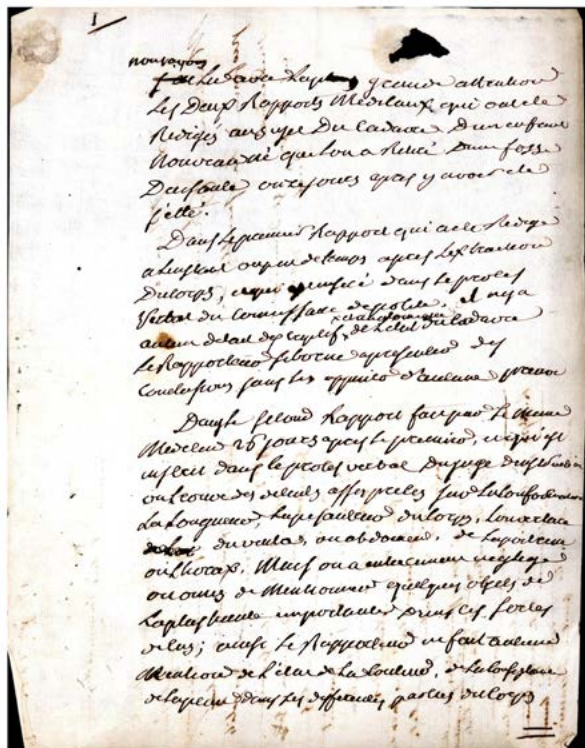 1
nous avons
lu avec la plus grande attention
les deux Rapports Médicaux qui ont été
Rédigés au sujet du Cadavre d'un enfant
nouveau né que l'on a Retiré d'une fosse
jetté.
Dans le premier Rapport qui a été Rédigé
a l'instant ou peu de temps après l'extraction
du Corps, et qui
verbal du Commissaire de police, il n'y a
aucun détail descriptif de l'état du Cadavre
le Rapporteur se borne a présenter des
Conclusions sans les appuyer d'aucune preuve
Dans le second Rapport fait par le même
Médecin 26 jours après le premier, et qui est
inscrit dans le procès verbal du juge d'instruction
on trouve des détails assez précis sur la
la Longueur, la pesanteur du Corps,
du ventre, ou abdomen, de la poitrine
ou thorax, Mais on a entièrement négligé
ou omis de Mentionner quelques objets de
la plus haute importance dans ces sortes
de Cas; ainsi le Rapporteur ne fait aucune
Mention de l'état de la Couleur, de la Consistance
de la peau dans les différentes parties du Corps